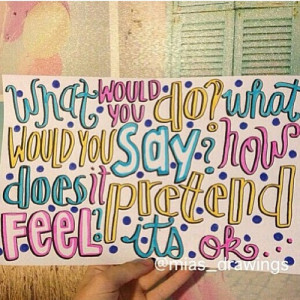 What WOULD YOU do? what
WOULD YOU Say? how
does it pretend
FEEL? its ok...
@mias_drawings